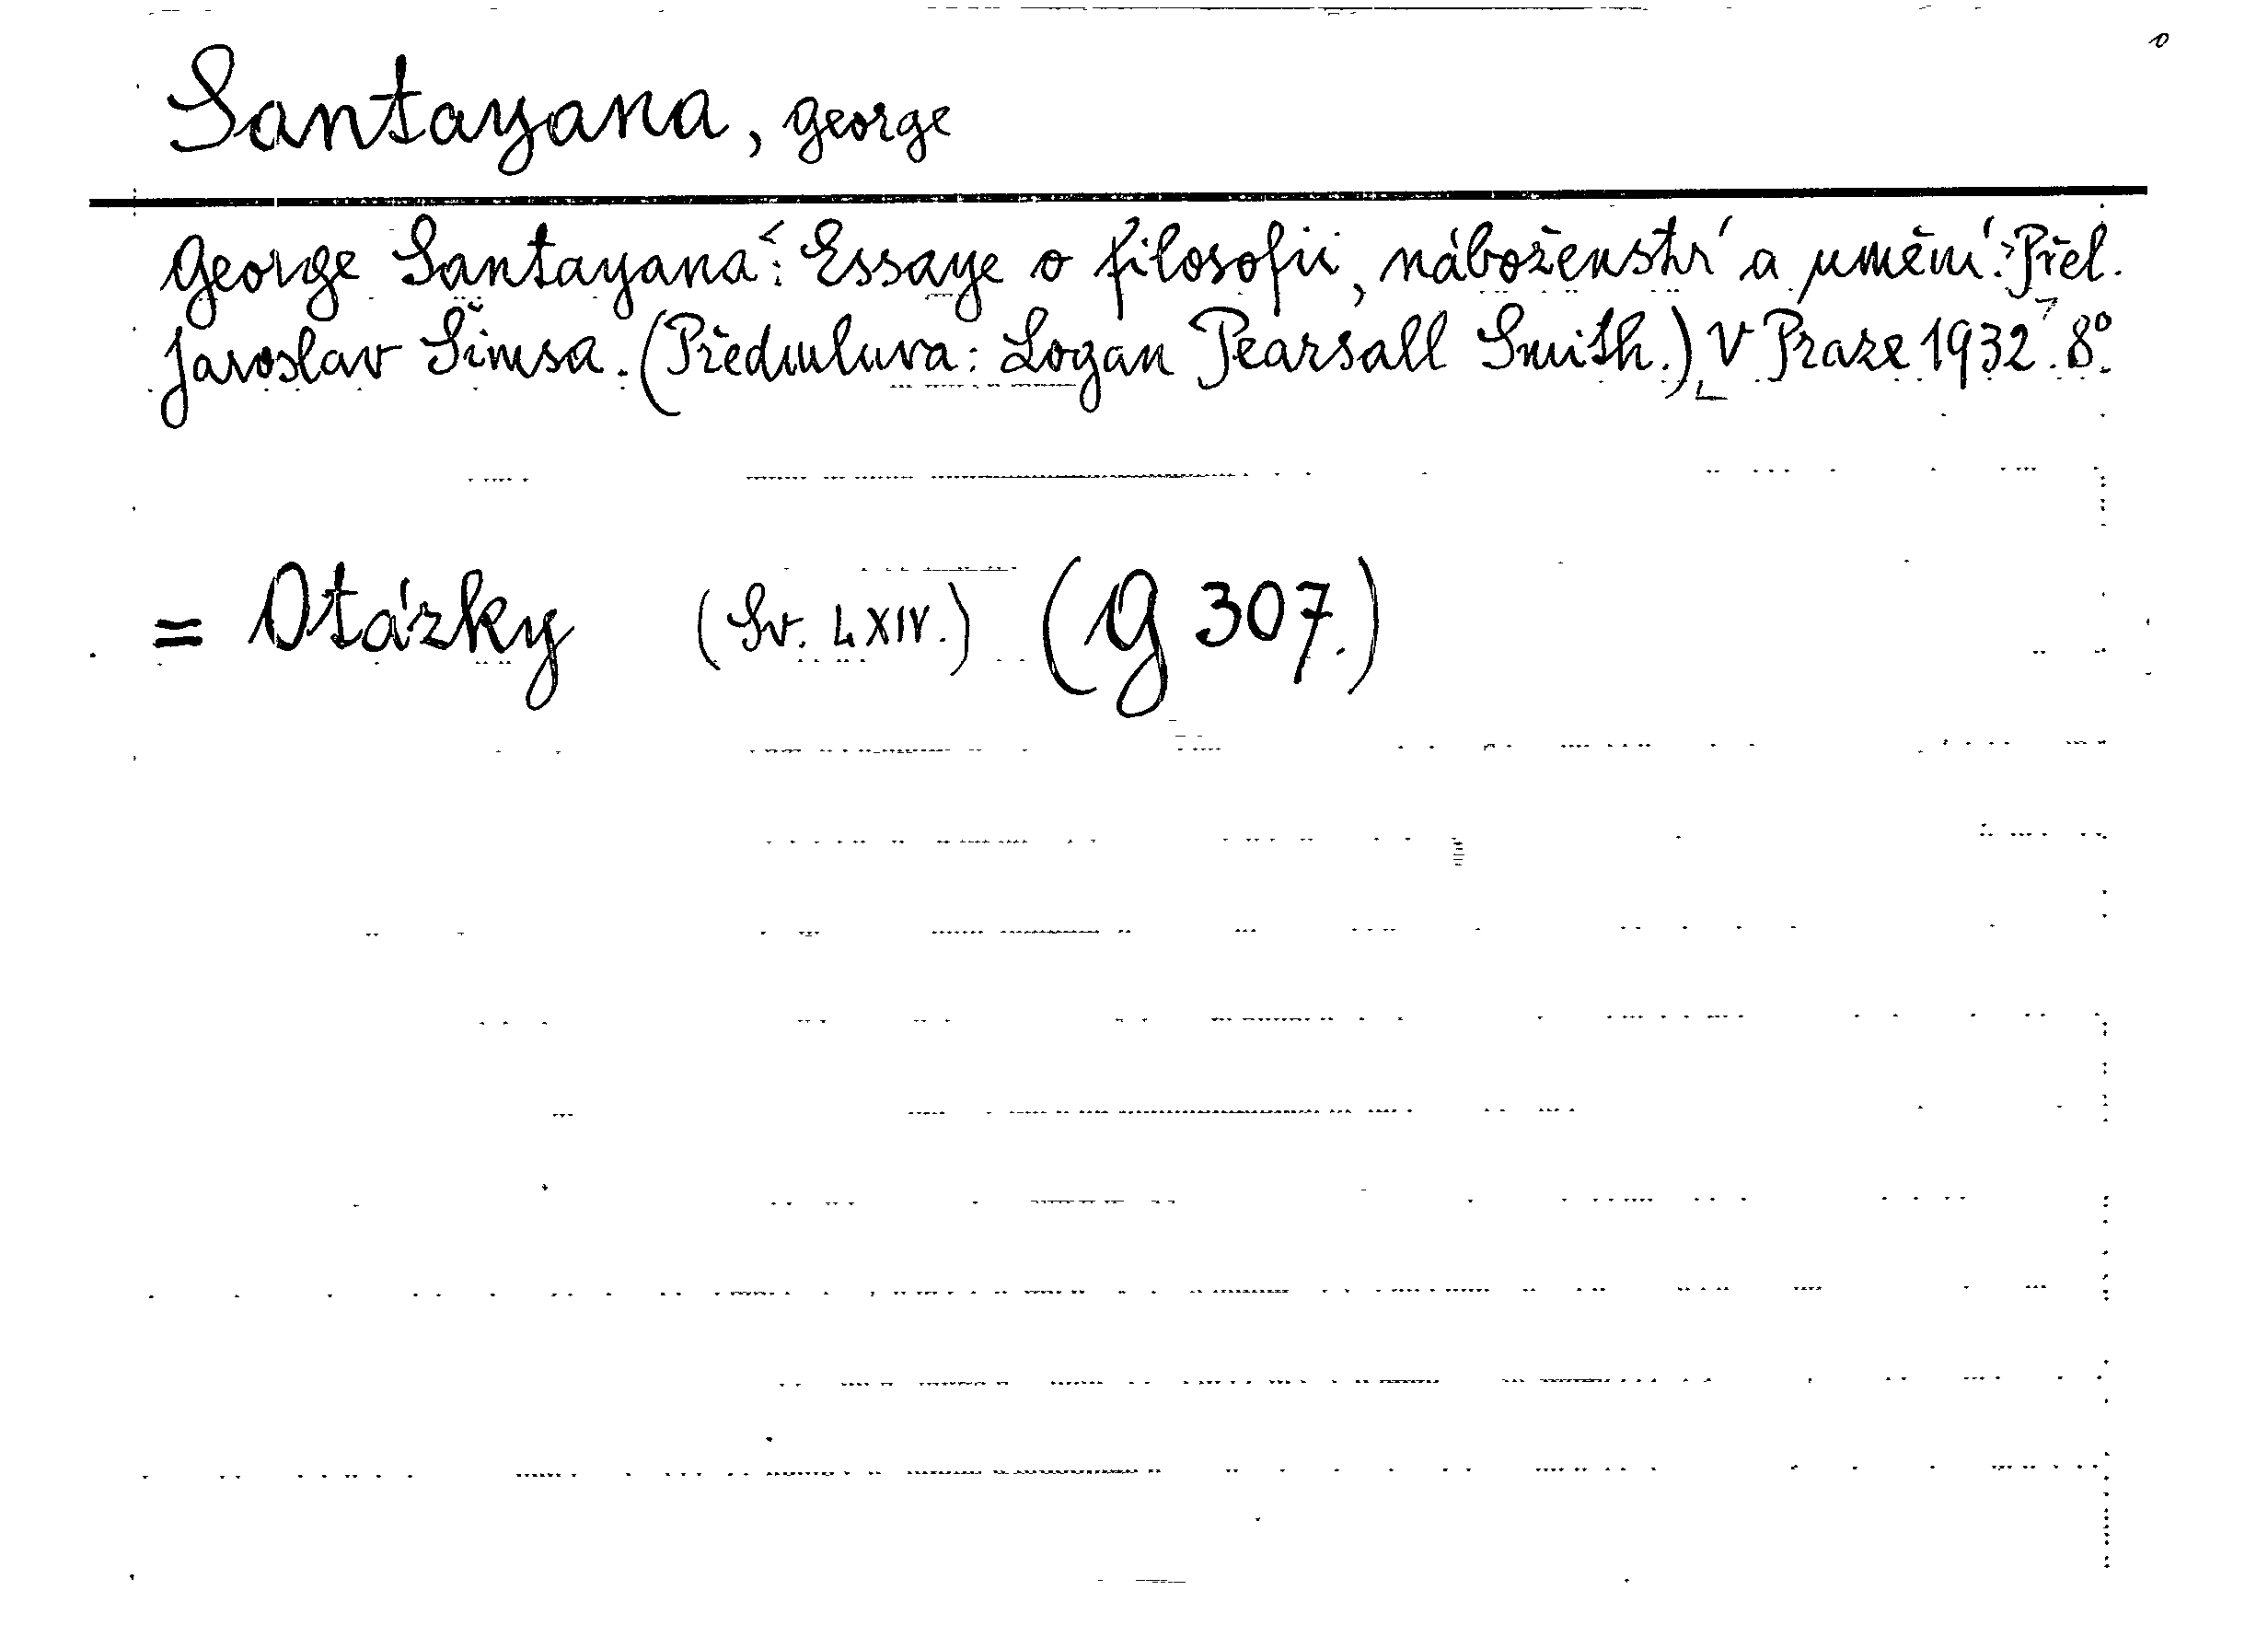 Santayana, George
George Santayana: Essaye o filosofii, náboženství a umění. Přel.
Jaroslav Šimsa. (Předmluva: Logan Pearsall Smith.) V Praze 1932. 8°.
= Otázky (Sv. LXIV.) (G 307.)